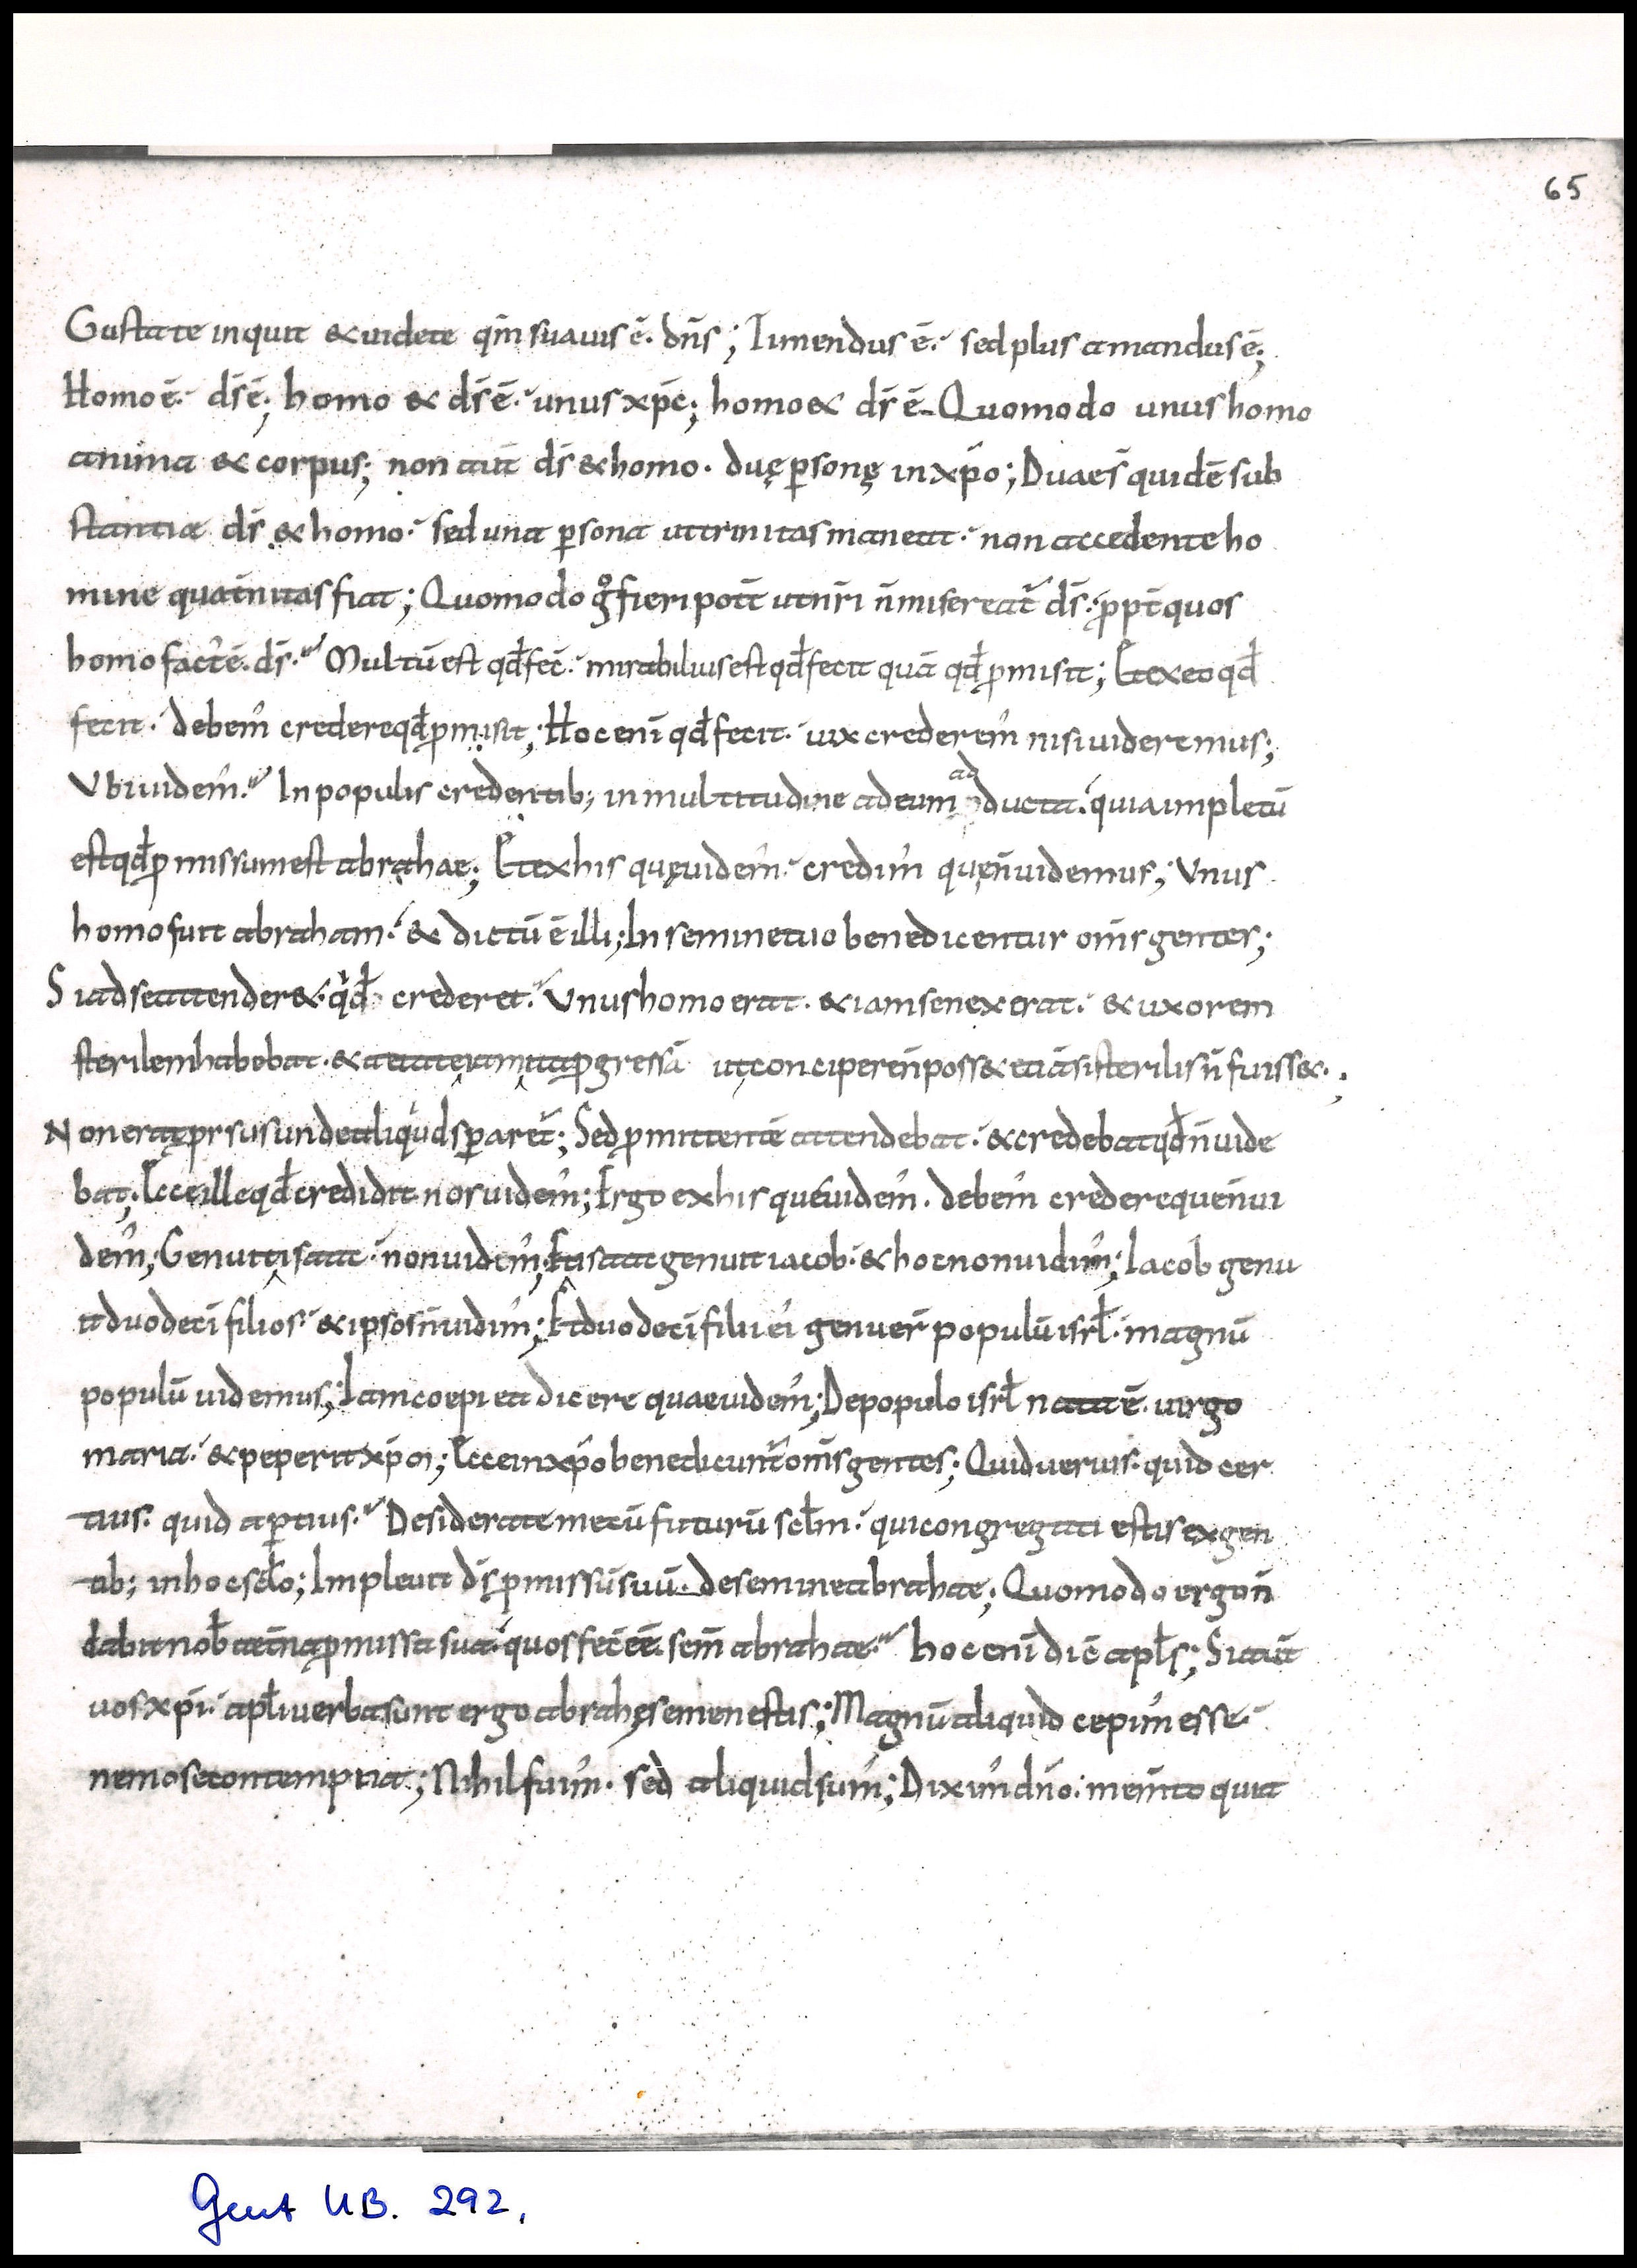 65
Gustate inquit & uidete qm̅ suauis e̅. dn̅s; Timendus e̅. sed plus amandus e̅;
Homo e̅. ds̅ e̅; homo & ds̅ e̅. unus xpc̅; homo & ds̅ e̅. Quomodo unus homo
anima & corpus; non aut̅ ds̅ & homo. duę p̲sonę in xp̅o; Duae s̅ quide̅ sub
stantiae ds̅ & homo. sed una p̲sona ut trinitas maneat. non accedente ho
mine quat̅nitas fiat; Quomodo gͦ fieri pot̅ ut nr̅i n̅ misereat̅ ds̅. ppt̅ quos
homo fact᾽ e̅. ds̅. Multu̅ est qd̅ fec̅. mirabilius est qd̅ fecit qua̅ qd̅ p̲misit; Et ex eo qd̅
fecit. debem᾽ credere qd̅ p̲misit; Hoc eni̅ qd̅ fecit. uix crederem᾽ nisi uideremus;
Vbi uidem᾽. In populis credentib; in multitudine ad eum ad ducta. quia impletu̅
est qd̅ p̲missum est abrahae; Et ex his quę uidem᾽. credim᾽ quę n̅ uidemus; Vnus
homo fuit abraham. & dictu̅ e̅ illi; In semine tuo benedicentur om̅s gentes;
Si ad se attender&. qͥd crederet. Vnus homo erat. & iam senex erat. & uxorem
sterilem habebat. & aetate iam ita p̲gressa̅ ut concipere n̅ poss& etia̅ si sterilis n̅ fuiss&.;
Non erat prsus unde aliqͥd sp̲aret̅; Sed p̲mittente̅ attendebat. & credebat qd̅ n̅ uide
bat; Ecce ille qd̅ credidit nos uidem᾽; Ergo ex his que uidem᾽. debem᾽ credere que n̅ ui
dem᾽; Genuit isaac. non uidem᾽; Et isaac genuit iacob. & hoc non uidim᾽; Iacob genu
it duodeci̅ filios. & ipsos n̅ uidim᾽; Et duodeci̅ filii ei᾽ genuer̅ populu̅ isrl̅. magnu̅
populu̅ uidemus; Iam coepi ea dicere quae uidem᾽; De populo isrl̅ nata e̅. uirgo
maria. & peperit xp̅m; Ecce in xp̅o benedicunt̅ om̅s gentes; Quid uerius. quid cer
tius. quid ap̲tius. Desiderate mecu̅ futuru̅ sclm̅. qui congregati estis ex gen
tib; in hoc sclo̅; Impleuit ds̅ p̲missu̅ suu̅. de semine abrahae; Quomodo ergo n̅
dabit nob̅ aet̅na p̲missa sua. quos fec̅ e̅e̅. sem̅ abrahae. hoc eni̅ dic̅ apls̅; Si aut̅
uos xp̅i. apl̅i uerba sunt ergo abrahę semen estis; Magnu̅ aliquid cepim᾽ esse.
nemo se contempnat; Nihil fuim᾽. sed aliquid sum᾽; Dixim᾽ dn̅o. mem̅to quia
Gent UB. 292.